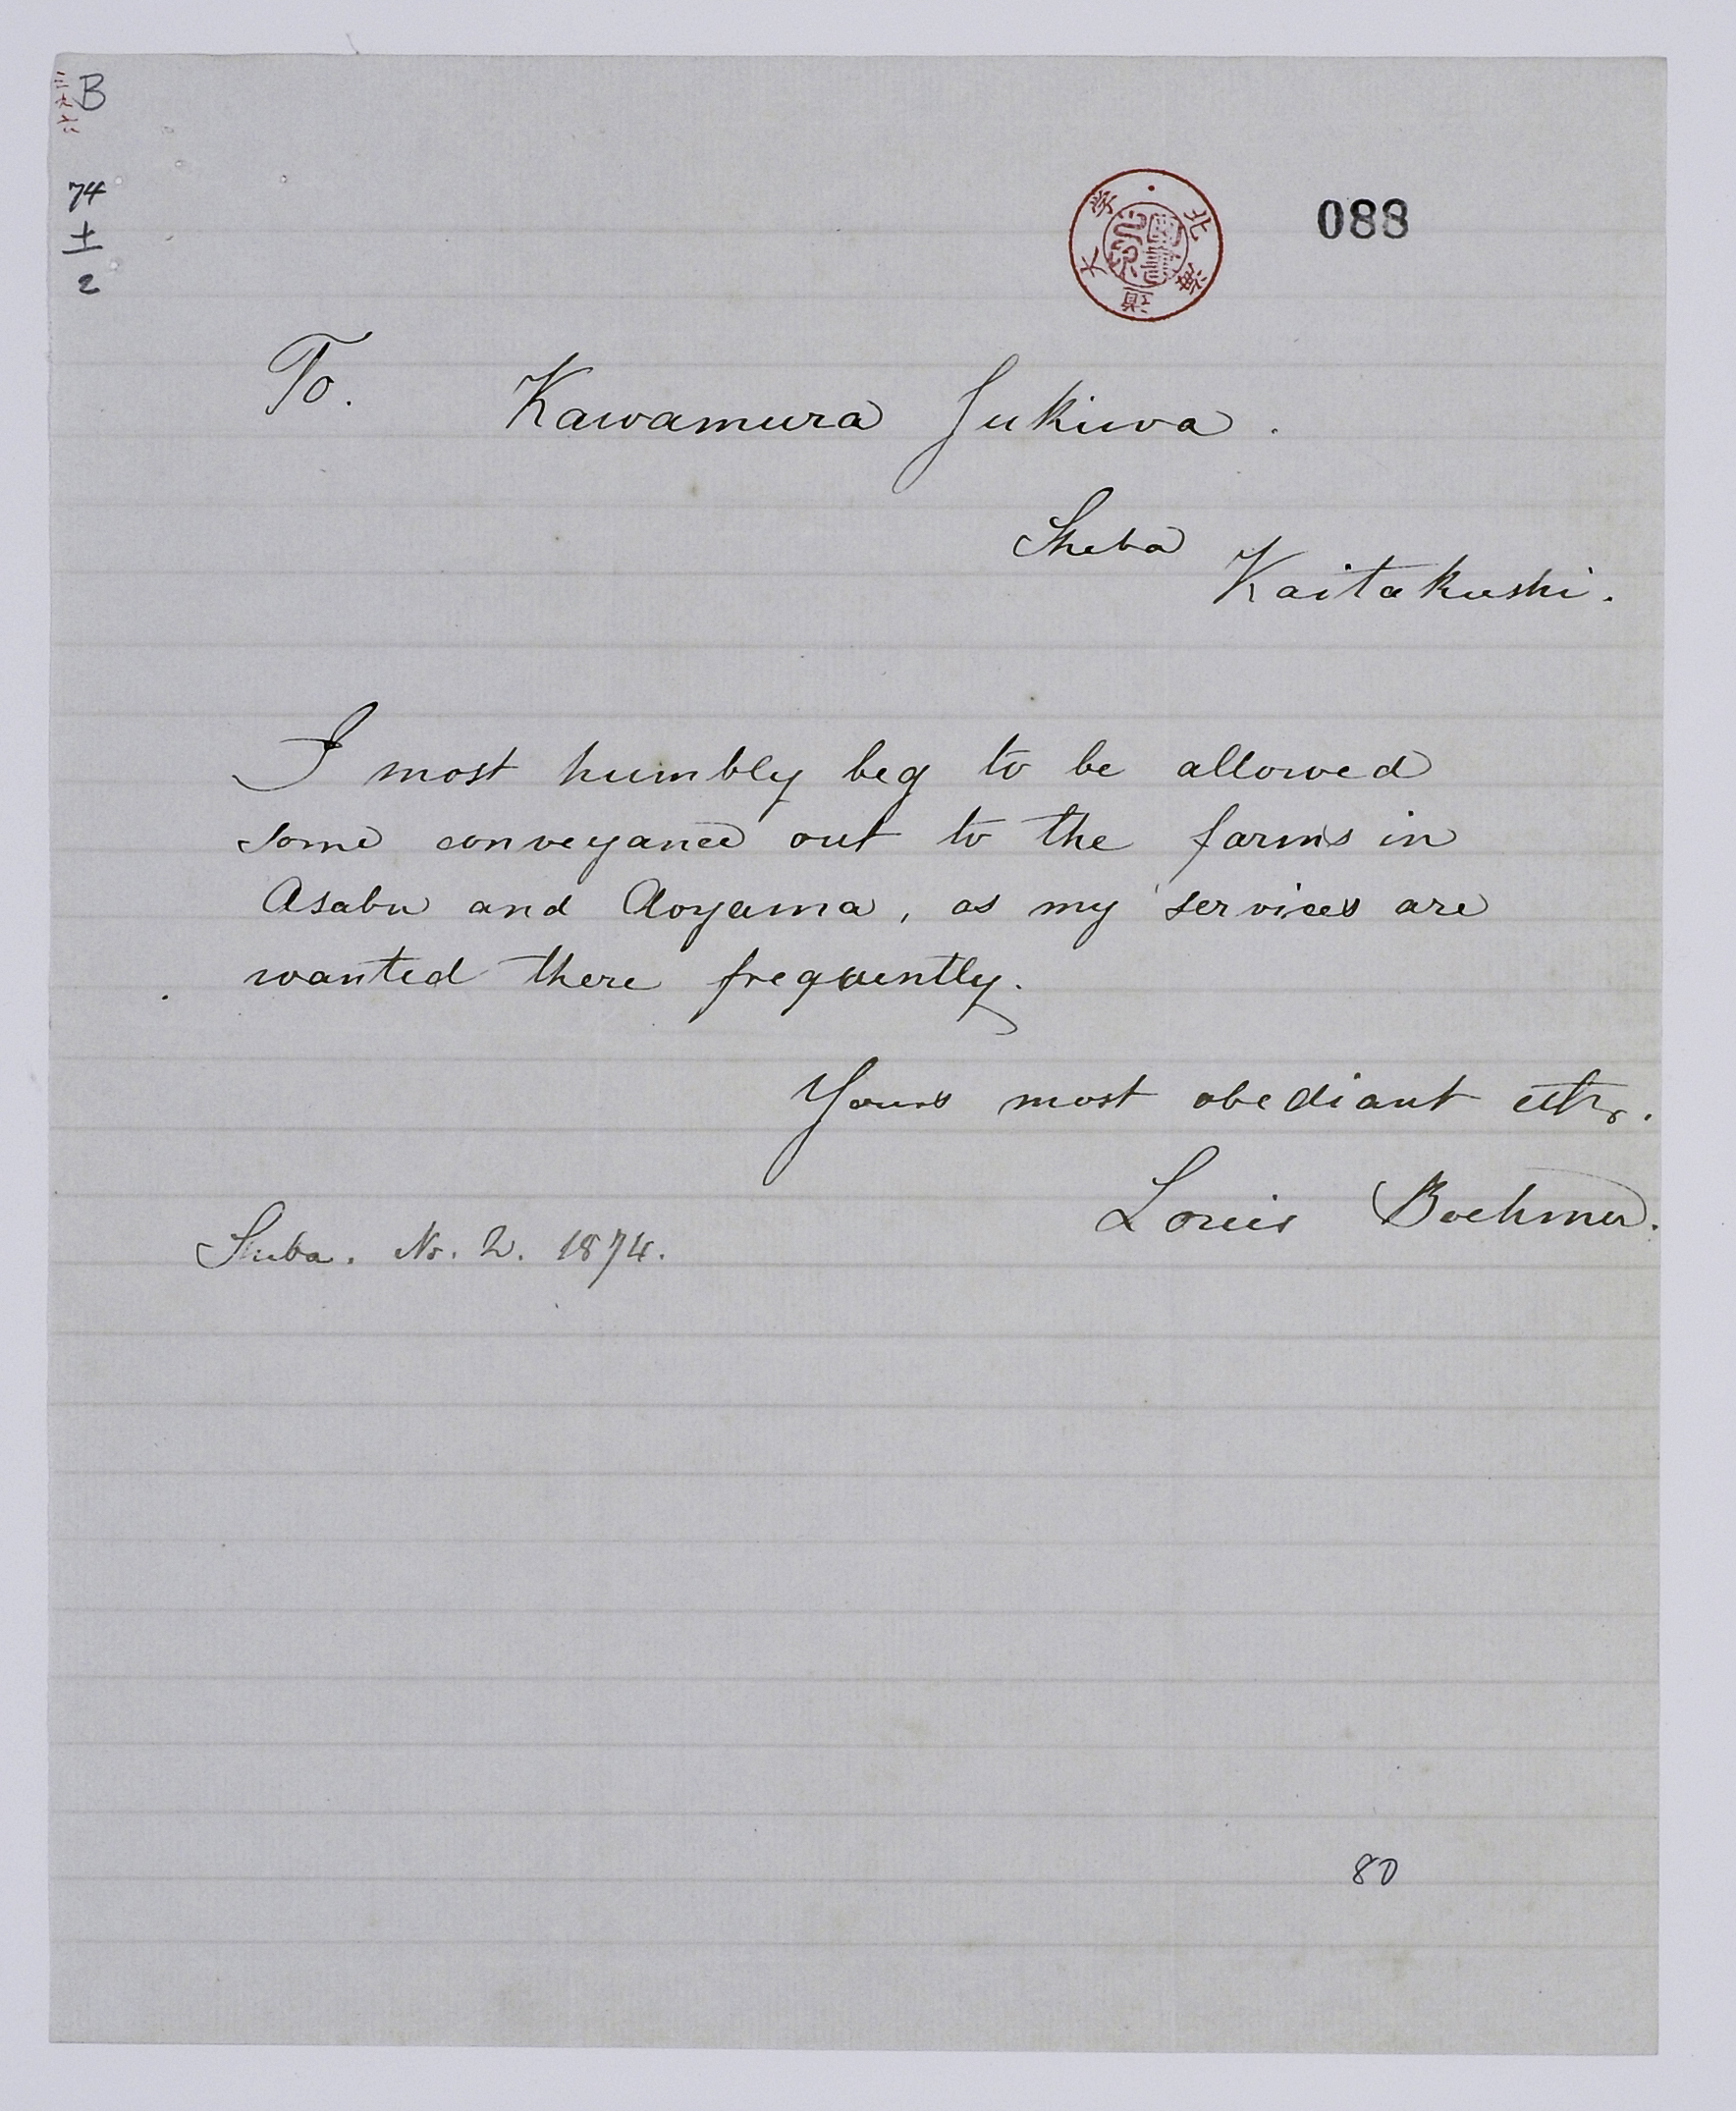 B
74
±
2
北海道大学
図書
088
To. Kawamura Jukiwa.
Sheba
Kaitakushi.
I most humbly beg to be allowed
some conveyance out to the farms in
Asabu and Aoyama, as my services are
wanted there frequently.
Yours most obediant
Louis Boehmer.
Sheba. No. 2. 1874.
80